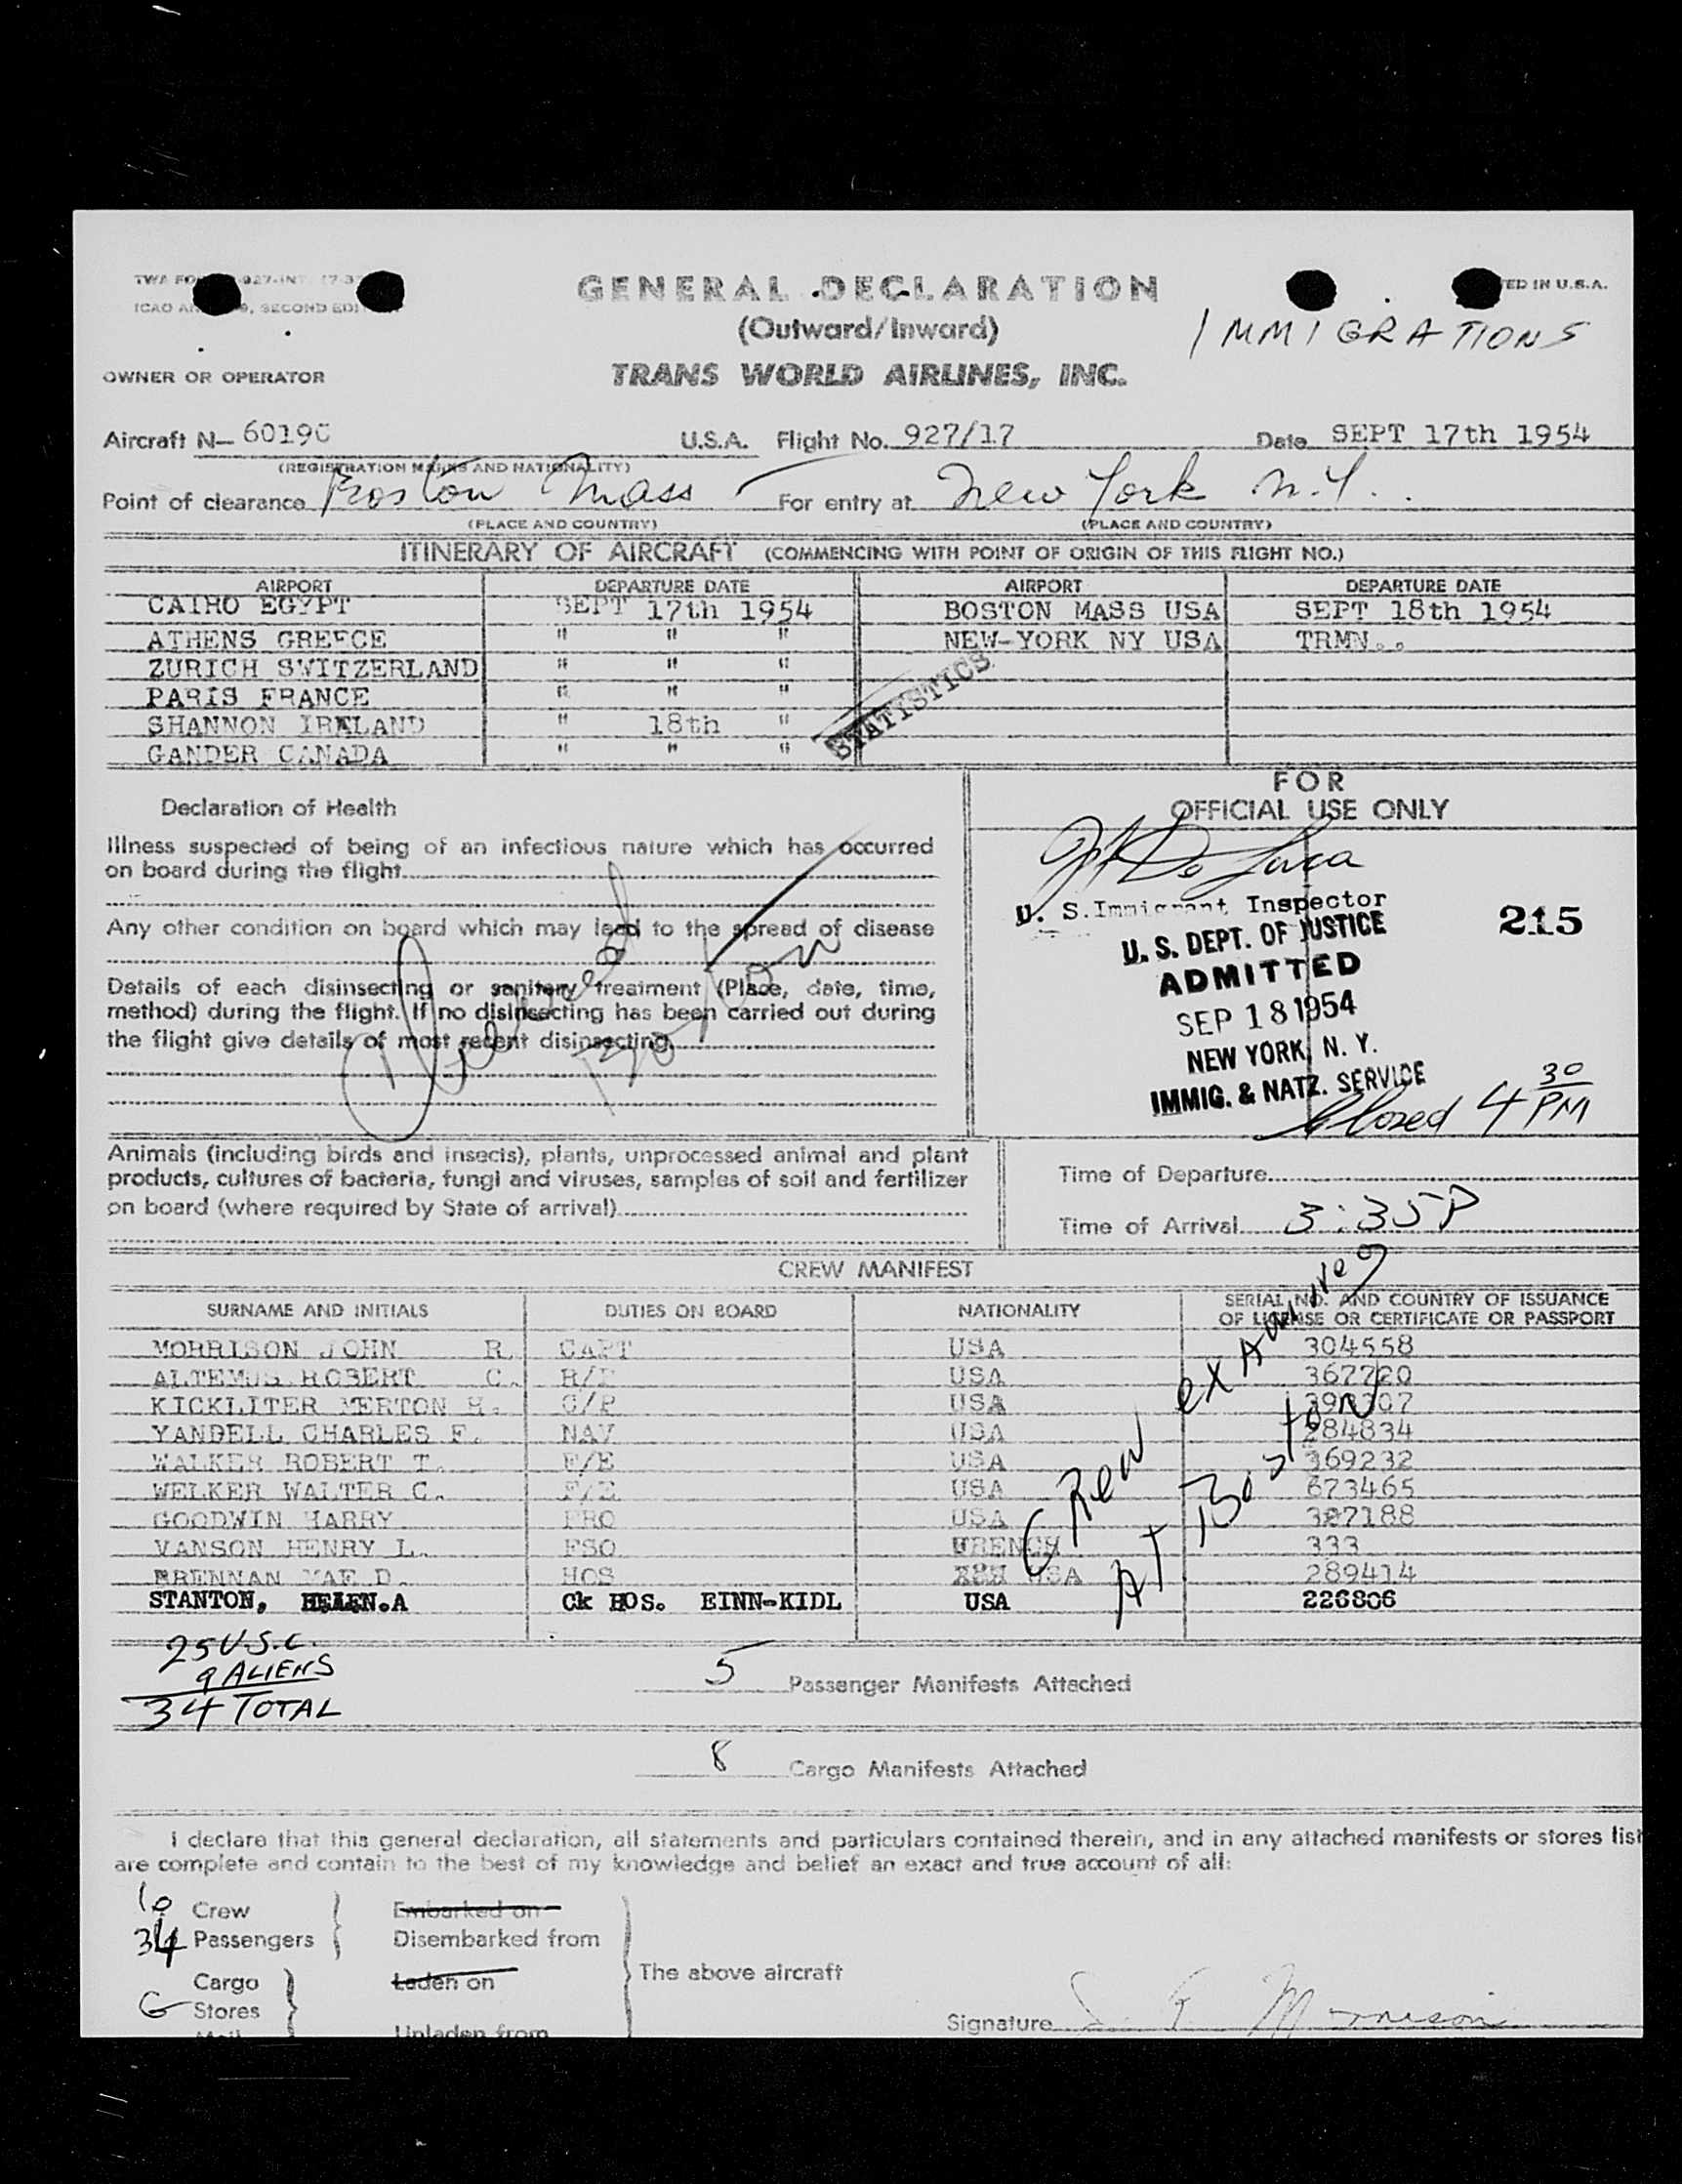 GENERAL DECLARATION
(Outward/Inward)
IMMIGRATIONS
OWNER OR OPERATOR
TRANS WORLD AIRLINES, INC.
Aircraft N— U.S.A. Flight No. 927/17 Date SEPT 17th 1954
(REGISTRATION MARKS AND NATIONALITY)
Point of clearance Boston Mass For entry at New York N.Y.
(PLACE AND COUNTRY) (PLACE AND COUNTRY)
ITINERARY OF AIRCRAFT (COMMENCING WITH POINT OF ORIGIN OF THIS FLIGHT NO.)
AIRPORT DEPARTURE DATE AIRPORT DEPARTURE DATE
CAIRO EGYPT SEPT 17th 1954 BOSTON MASS USA SEPT 18th 1954
ATHENS GREECE " " " NEW-YORK NY USA TRMN..
ZURICH SWITZERLAND " " "
PARIS FRANCE " " "
SHANNON IRELAND " 18th "
GANDER CANADA " " "
STATISTICS
Declaration of Health
Illness suspected of being of an infectious nature which has occurred
on board during the flight
Any other condition on board which may lead to the spread of disease
Details of each disinsecting or sanitary treatment (Place, date, time,
method) during the flight. If no disinsecting has been carried out during
the flight give details of most recent disinsecting
Cleared Boston
FOR
OFFICIAL USE ONLY
De Luca
U. S. Immigrant Inspector
215
U. S. DEPT. OF JUSTICE
ADMITTED
SEP 18 1954
NEW YORK, N. Y.
IMMIG. & NATZ. SERVICE
Closed 4 30 PM
Animals (including birds and insects), plants, unprocessed animal and plant
products, cultures of bacteria, fungi and viruses, samples of soil and fertilizer
on board (where required by State of arrival)
Time of Departure
Time of Arrival 3:35P
CREW MANIFEST
SURNAME AND INITIALS DUTIES ON BOARD NATIONALITY SERIAL NO. AND COUNTRY OF ISSUANCE
OF LICENSE OR CERTIFICATE OR PASSPORT
MORRISON JOHN R. CAPT USA 304558
ALTEMUS ROBERT C. USA 367720
KICKLITER MERTON H. USA
YANDELL CHARLES F. NAV USA 284834
WALKER ROBERT T. F/E USA 369232
WELKER WALTER C. F/E USA 673465
GOODWIN HARRY USA
VANSON HENRY L. FSO FRENCH 333
BRENNAN MAE D. HOS USA 289414
STANTON, HELEN.A Ck HOS. EINN-KIDL USA 226806
Crew examined
at Boston
25 U.S.C.
9 ALIENS
34 TOTAL
5 Passenger Manifests Attached
8 Cargo Manifests Attached
I declare that this general declaration, all statements and particulars contained therein, and in any attached manifests or stores list
are complete and contain to the best of my knowledge and belief an exact and true account of all:
10 Crew Embarked on
34 Passengers Disembarked from
The above aircraft
Cargo Laden on
Stores
Mail Unladen from
Signature Morrison